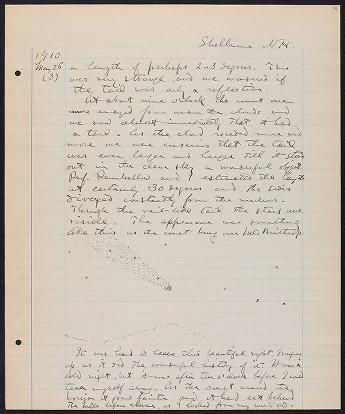 Shelburne N.H.
1910
May 26
(3)
a length of perhaps 2 or 3 degrees. This
was very strange and we wondered if
the tail was only a reflection.
At about nine o'clock the comet once
more emerged from under the clouds and
we saw almost immediately that it had
a tail. As the cloud receded more and
more we were conscious that the tail
was ever larger and larger till it stood
out in the clear sky a wonderful object.
Prof. and I estimated the length
at certainly 30 degrees and the sides
diverged constantly from the nucleus.
Through the veil-like tail the stars were
visible. The appearance was something
like this as the comet hung over Mt.
It was hard to leave this beautiful sight, bringing
up as it did the wonderful history of it. It was a
cold night, but it was after ten o'clock before I could
tear myself away. As the comet neared the
horizon it grew fainter and it had set behind
the hills before eleven, as I looked from my window.